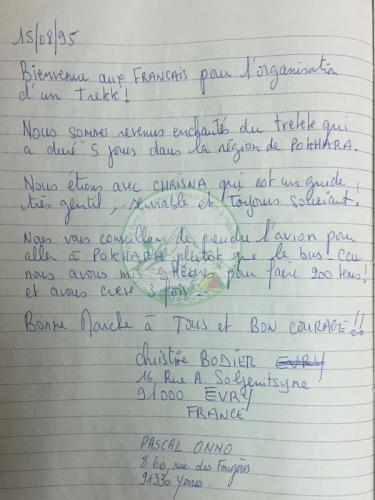 15/08/95
Bienvenue aux FRANCAIS pour l'organisation
d'un Trekk!
Nous sommes revenus enchantés du trekk qui
a duré 5 jours dans la région de POKHARA.
Nous étions avec CHRISNA qui est un guide
très gentil, serviable et toujours souriant.
Nous vous conseillons de prendre l'avion pour
aller à POKHARA plutôt que le bus car
nous avons mis 9 heures pour faire 200 kms!
et avons crevé 3 fois.
Bonne Marche à TOUS et BON COURAGE!!
Christine BODIER EVRY
16, Rue A. Soljenitsyne
91000 EVRY
FRANCE
PASCAL ONNO
8 bis, rue des Fougères
91330 Yerres